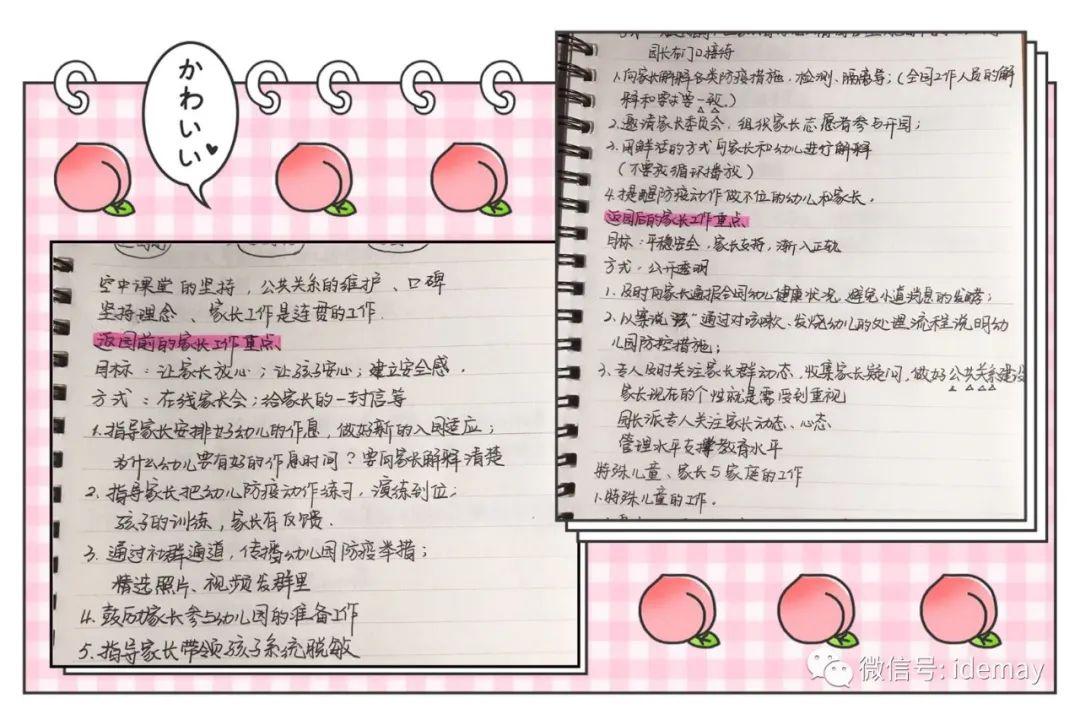 かわいい
空中课堂的坚持，公共关系的维护、口碑
坚持理念、家长工作是连贯的工作.
返园前的家长工作重点
目标：让家长放心；让孩子安心；建立安全感.
方式：在线家长会；给家长的一封信等
1.指导家长安排好幼儿的作息，做好新的入园适应；
为什么幼儿要有好的作息时间？要向家长解释清楚
2.指导家长把幼儿防疫动作练习，演练到位；
孩子的训练，家长有反馈.
3.通过社群通道，传播幼儿园防疫举措；
精选照片、视频发群里
4.鼓励家长参与幼儿园的准备工作
5.指导家长带领孩子系统脱敏
园长在门口接待
1.向家长解释各类防疫措施，检测、隔离等；(全园工作人员的解
释和要求要一致.)
2.邀请家长委员会，组织家长志愿者参与开园；
3.用鲜活的方式向家长和幼儿进行解释
（不要求循环播放）
4.提醒防疫动作做不位的幼儿和家长.
返园后的家长工作重点
目标：平稳安全，家长支持，渐入正轨
方式：公开透明
1.及时向家长通报全园幼儿健康状况，避免小道消息的发酵；
2.以案说“法”通过对咳嗽、发烧幼儿的处理流程说明幼
儿园防控措施；
3.专人及时关注家长群动态，收集家长疑问，做好公共关系建设
家长现在的个性就是需受到重视
园长派专人关注家长动态、心态
管理水平支撑教育水平
特殊儿童、家长与家庭的工作
1.特殊儿童的工作.
微信号: idemay